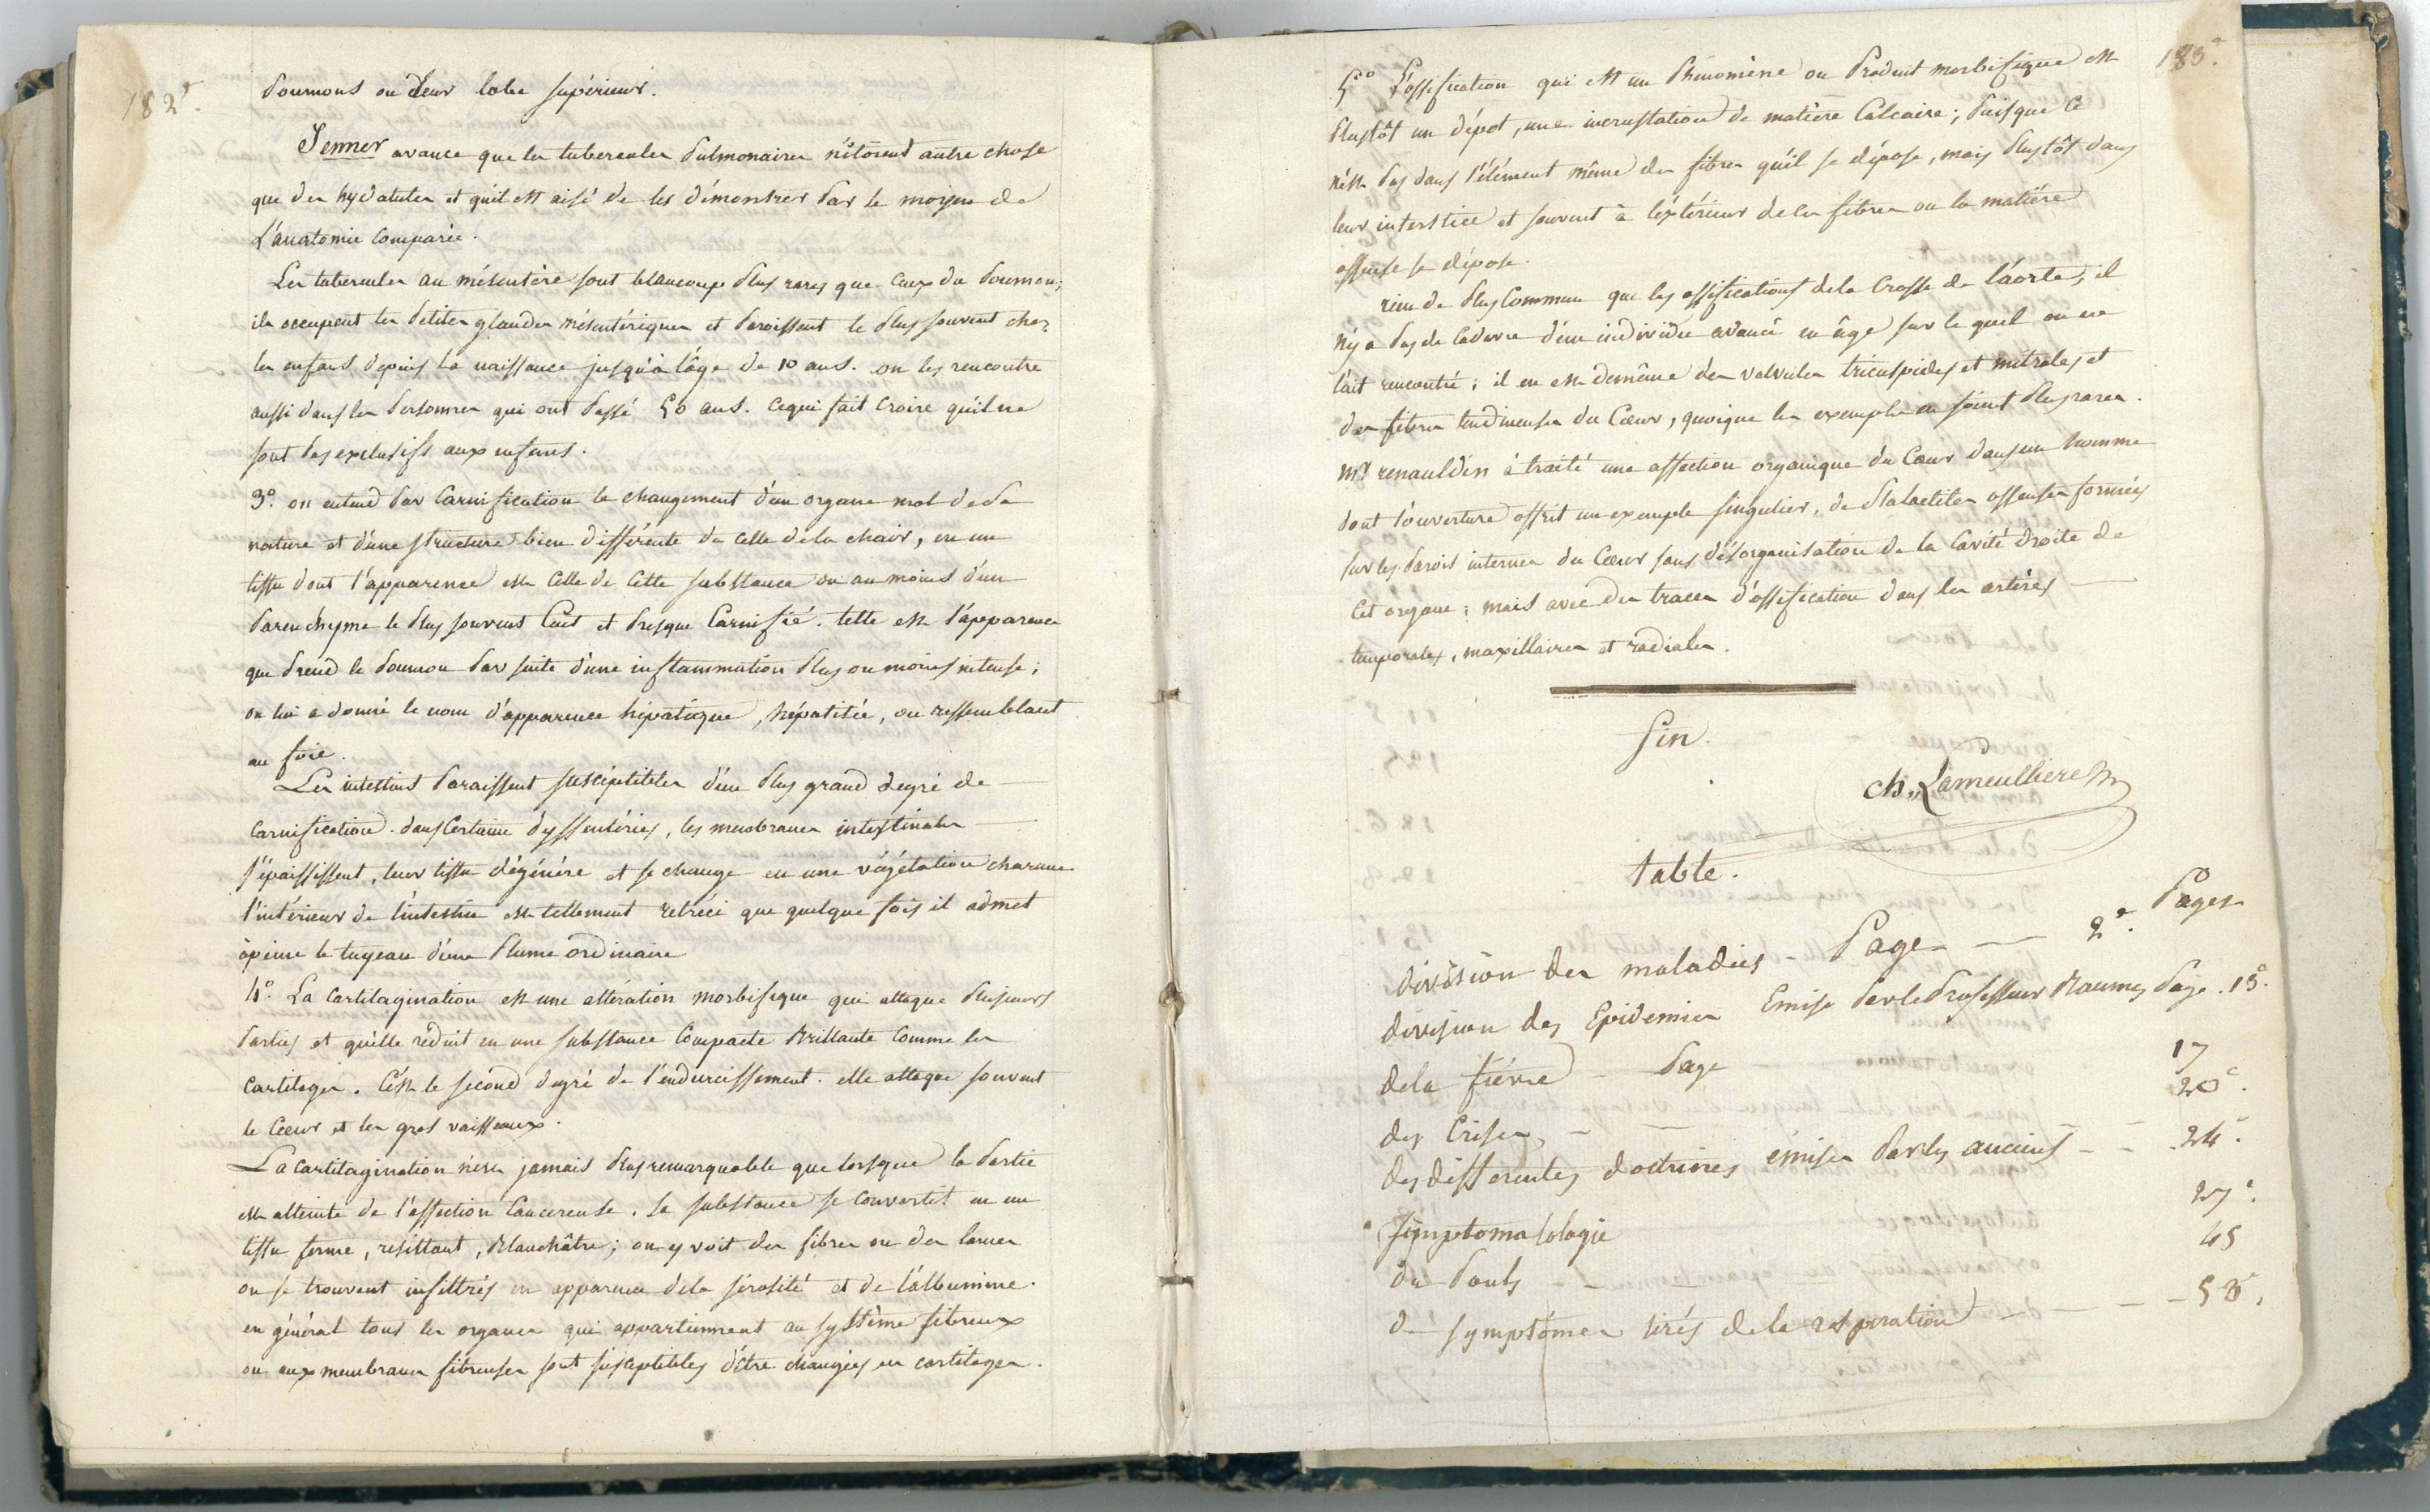 182e.
Poumons ou Leur lobe supérieur.
Jenner avance que les tubercules Pulmonaires n'étoient autre chose
que des hydatides et qu'il est aisé de les démontrer Par le moyen de
L'anatomie Comparée.
Les tubercules au mésentère sont beaucoup Plus rares que Ceux du Poumon,
ils occupent les Petites glandes mésentériques et Paroissent le Plus souvent chez
les enfans depuis la naissance jusqu'à l'âge de 10 ans. on les rencontre
aussi dans les Personnes qui ont Passé 50 ans. Cequi fait Croire qu'il ne
sont Pas exclusifs aux enfans.
3°. on entend Par Carnification le changement d'un organe mol de Sa
nature et d'une structure bien différente de Celle dela chair, en un
tissu dont l'apparence est Celle de Cette substance ou au moins d'un
Parenchyme le Plus souvent Cuit et Presque Carnifié. telle est l'apparence
que Prend le Poumon Par suite d'une inflammation Plus ou moins intense;
on lui a donné le nom d'apparence hépatique, hépatitée, ou ressemblant
au foie.
Les intestins Paraissent susceptibles d'un Plus grand degré de
Carnification. dans Certaine dyssenteries, les membranes intestinales
s'épaississent, leur tissu dégénére et se change en une végétation charnue
l'intérieur de l'intestin est tellement retréci que quelque fois il admet
àpeine le tuyeau d'une Plume ordinaire
4°. La Cartilagination est une altération morbifique qui attaque Plusieurs
Parties et qu'elle réduit en une substance Compacte Brillante Comme les
Cartilages. C'est le second degré de l'endurcissement. elle attaque souvent
le Cœur et les gros vaisseaux.
La Cartilagination n'est jamais Plus remarquable que lorsque la Partie
est atteinte de l'affection Cancereuse. Sa substance se Convertit en un
tissu ferme, résistant, Blanchâtre; on y voit des fibres ou des lames
ou se trouvent infiltrés en apparence dela sérosité et de l'albumine.
en général tous les organes qui appartiennent au système fibreux
ou aux membranes fibreuses sont susceptibles d'être changées en cartilages.
183e.
5° L'ossification qui est un Phénomène ou Produit morbifique est
Plustôt un dépot, une incrustation de matière Calcaire; Puisque Ce
n'est Pas dans l'élément même des fibres qu'il se dépose, mais Plustôt dans
leur interstice et souvent à l'extérieur deces fibres ou la matière
osseuse se dépose.
rien de Plus Commun que les ossifications dela Crosse de l'aorte, il
n'y a Pas de Cadavre d'une individu avancé en âge sur le quel on ne
l'ait rencontré; il en est demême des valvules tricuspides et mitrales et
des fibres tendineuses du Cœur, quoique les exemples en soient Plus rares.
Mr renauldin à traité une affection organique du Cœur dans un homme
dont l'ouverture offrit un exemple singulier, de Stalactites osseuses formées
sur les Parois internes du Cœur sans désorganisation de la Cavité droite de
Cet organe; mais avec des traces d'ossification dans les artères
temporales, maxillaires et radiales.
fin.
ch. Lameulliere
table.
Pages
division des maladies - Page - 2e.
division des Epidemies Emise Par le Professeur Baumes Page. 15e.
dela fièvre - Page 17
des Crises - 20e.
des differentes doctrines émises Par les anciens - - 24e.
Symptomatologie 27e.
du Pouls - - 45
des symptômes tirés dela respiration - - - 53e.